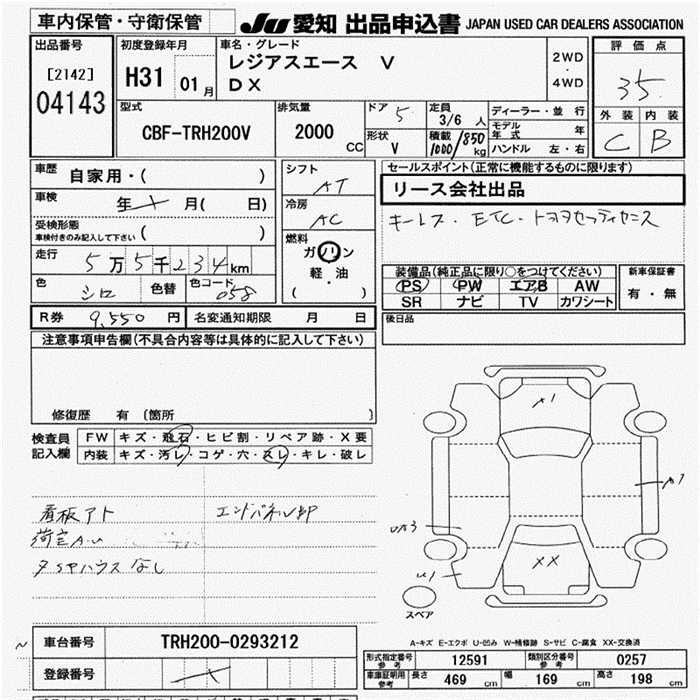 車内保管・守衛保管
JU 愛知 出品申込書 JAPAN USED CAR DEALERS ASSOCIATION
出品番号
[2142]
04143
初度登録年月
H31 01月
車名・グレード
レジアスエース V
DX
2WD
・
4WD
評価点
3.5
外装 内装
C B
型式
CBF-TRH200V
排気量
2000 CC
ドア 5
形状 V
定員 3/6 人
積載 1000/850 kg
ディーラー・並行
モデル年式 年
ハンドル 左・右
車歴 自家用・( )
車検 年 月( 日)
受検形態
車検付きのみ記入して下さい ( )
走行 5万5千234km
色 シロ 色替 色コード 058
シフト
AT
冷房
AC
燃料
ガソリン
軽・油
( ・ )
セールスポイント(正常に機能するものに限ります)
リース会社出品
キーレス・ETC・トヨタセーフティセンス
装備品(純正品に限り○をつけてください)
PS PW エアB AW
SR ナビ TV カワシート
新車保証書
有・無
R券 9,550円 名変通知期限 月 日
後日品
注意事項申告欄(不具合内容等は具体的に記入して下さい)
修復歴 有 〔箇所 〕
検査員記入欄
FW キズ・飛石・ヒビ割・リペア跡・X要
内装 キズ・汚レ・コゲ・穴・スレ・キレ・破レ
看板アト
エンドパネル
荷室A.U
タSヤハウスなし
A1
A3
U1
XX
スペア
A-キズ E-エクボ U-凹み W-補修跡 S-サビ C-腐食 XX-交換済
車台番号 TRH200-0293212
登録番号
形式指定番号参考 12591 類別区分番号参考 0257
車庫証明用参考 長さ 469cm 幅 169cm 高さ 198cm